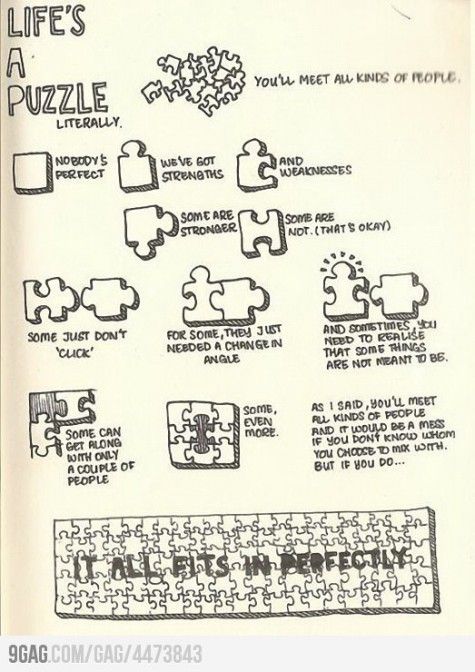 LIFE'S
A
PUZZLE
LITERALLY.
YOU'LL MEET ALL KINDS OF PEOPLE.
NOBODY'S
PERFECT
WE'VE GOT
STRENGTHS
AND
WEAKNESSES
SOME ARE
STRONGER
SOME ARE
NOT. (THAT'S OKAY)
SOME JUST DON'T
'CLICK'
FOR SOME, THEY JUST
NEEDED A CHANGE IN
ANGLE
AND SOMETIMES, YOU
NEED TO REALISE
THAT SOME THINGS
ARE NOT MEANT TO BE.
SOME CAN
GET ALONG
WITH ONLY
A COUPLE OF
PEOPLE
SOME,
EVEN
MORE.
AS I SAID, YOU'LL MEET
ALL KINDS OF PEOPLE
AND IT WOULD BE A MESS
IF YOU DON'T KNOW WHOM
YOU CHOOSE TO MIX WITH.
BUT IF YOU DO...
IT ALL FITS IN PERFECTLY
9GAG.COM/GAG/4473843